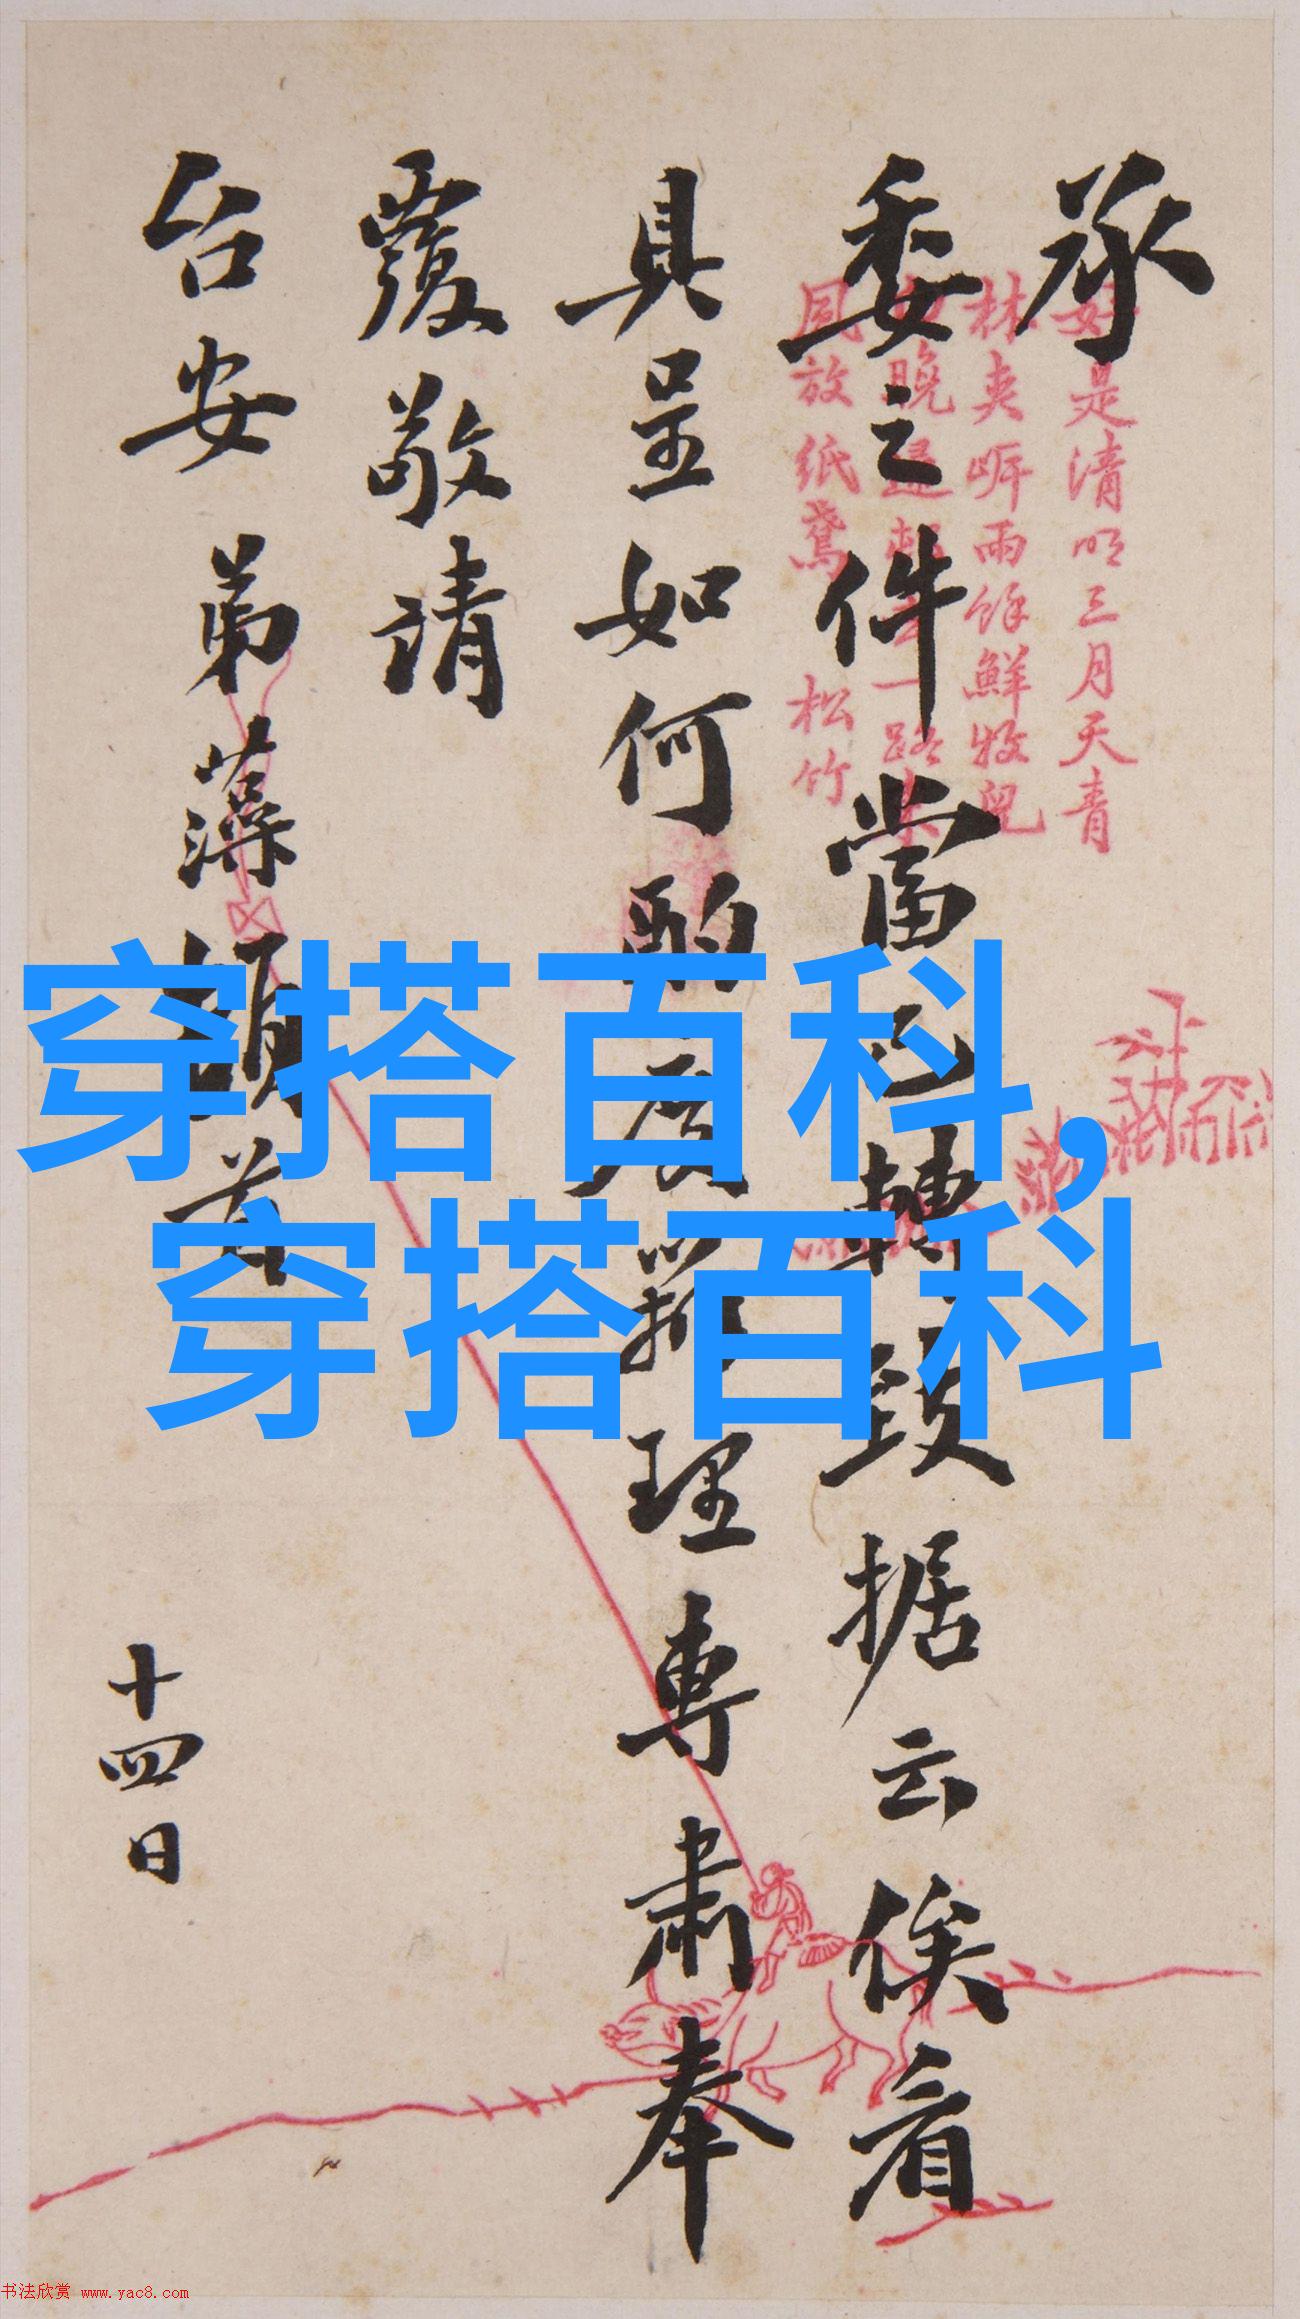 承
委之件當已轉致据云俟看
具呈如何酌度辦理專肅奉
覆敬請
台安 弟藻頓首
十四日
好是清明三月天青
林夾岍雨餘鮮牧兒
晚歸 一路
風放紙鳶 松竹
穿搭百科,
穿搭百科
书法欣赏 www.yac8.com